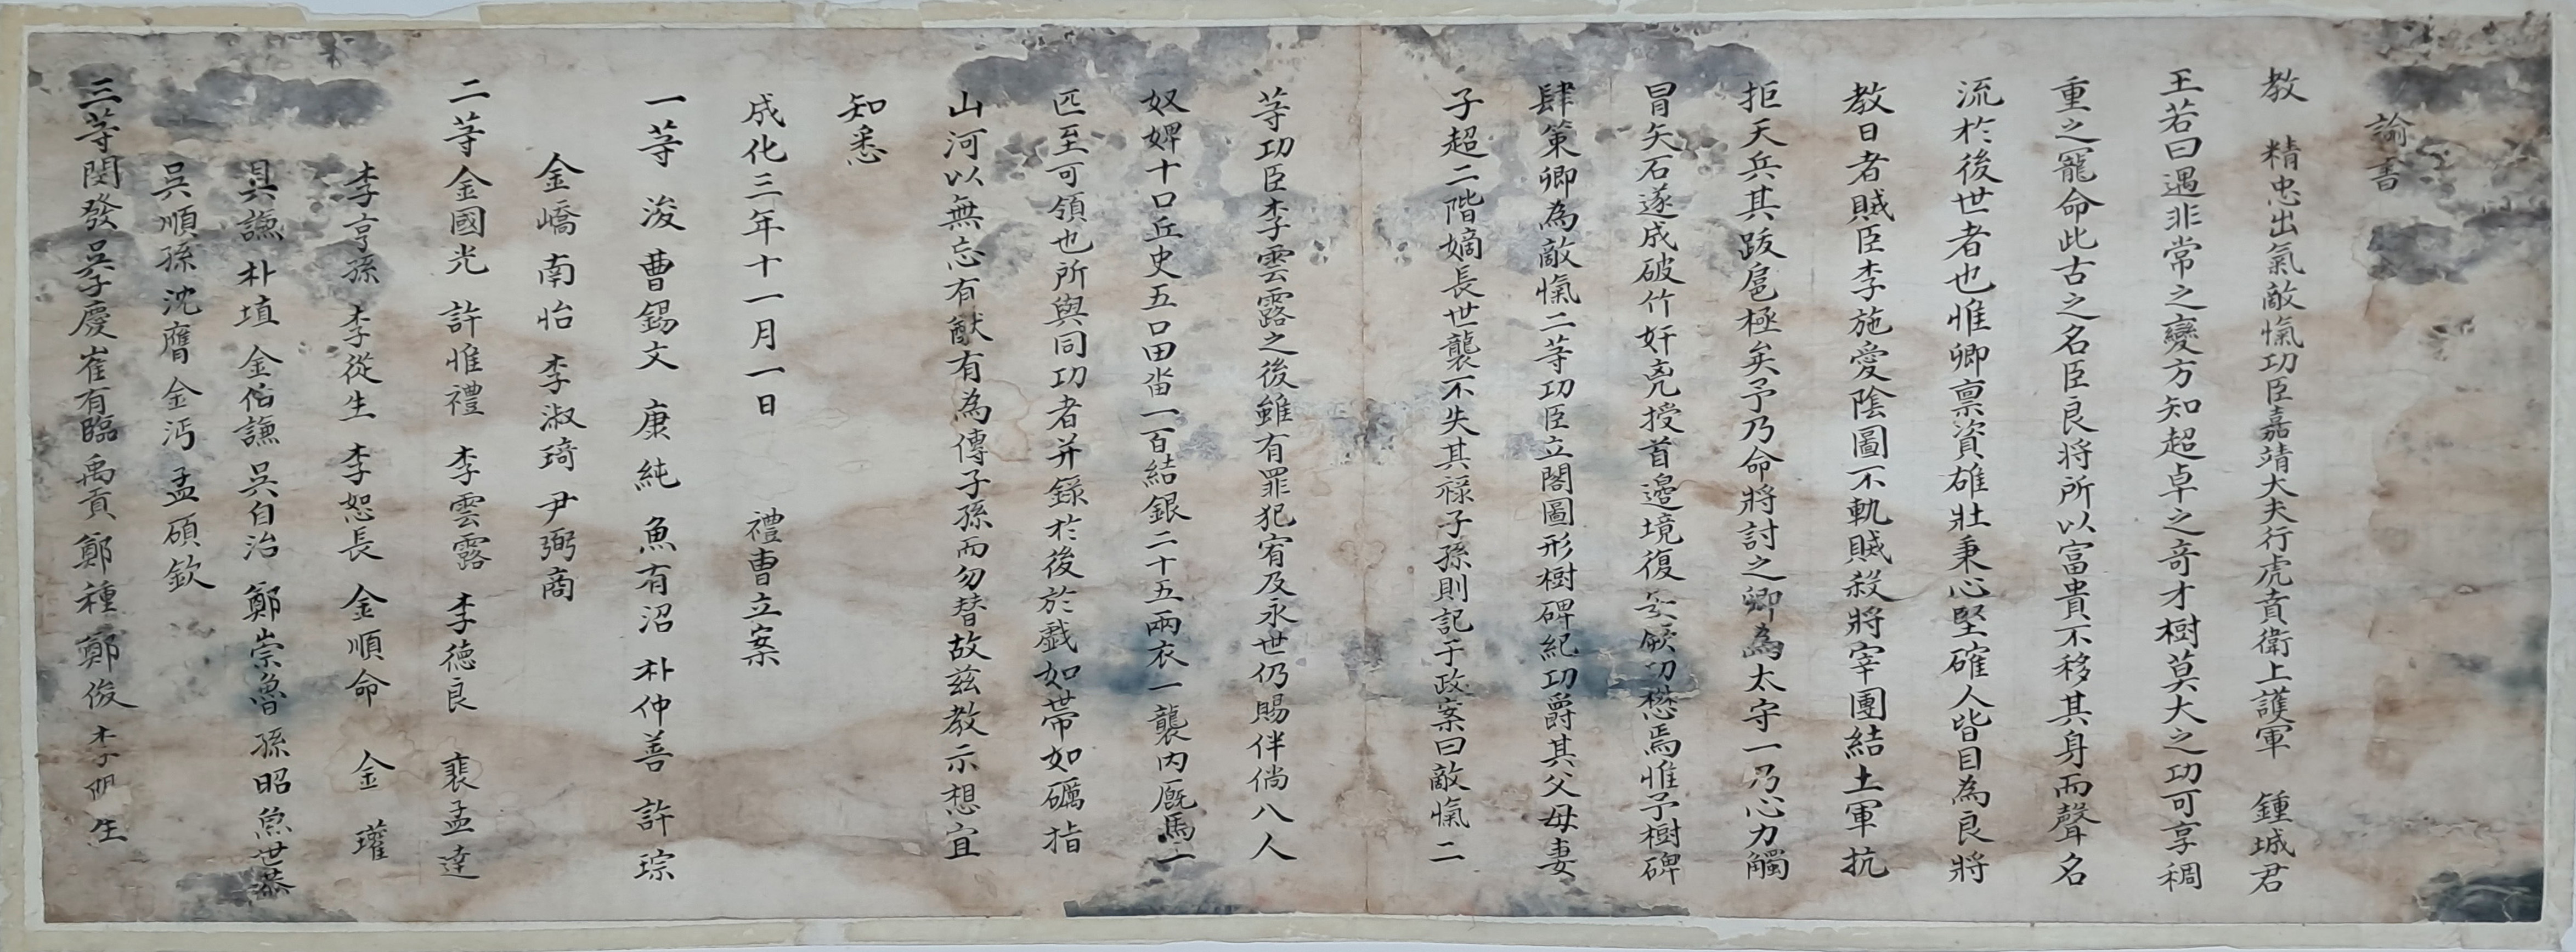 諭書
教 精忠出氣敵愾功臣嘉靖大夫行虎賁衛上護軍 鍾城君
王若曰遇非常之變方知超卓之奇才樹莫大之功可享稠
重之寵命此古之名臣良將所以富貴不移其身而聲名
流於後世者也惟卿禀資雄壯秉心堅確人皆目為良將
教日者賊臣李施愛陰圖不軌賊殺將宰團結土軍抗
拒天兵其跋扈極矣予乃命將討之卿為太守一乃心力觸
冒矢石遂成破竹奸兇授首邊境復 厥功懋焉惟予樹碑
肆策卿為敵愾二等功臣立閣圖形樹碑紀功爵其父母妻
子超二階嫡長世襲不失其祿子孫則記于政案曰敵愾二
等功臣李雲露之後雖有罪犯宥及永世仍賜伴倘八人
奴婢十口丘史五口田畓一百結銀二十五兩衣一襲內廐馬一
匹至可領也所與同功者并錄於後於戱如帶如礪指
山河以無忘有猷有為傳子孫而勿替故玆教示想宜
知悉
成化三年十一月一日 禮曹立案
一等 浚 曹錫文 康純 魚有沼 朴仲善 許琮
金嶠 南怡 李淑琦 尹弼商
二等 金國光 許惟禮 李雲露 李德良 裴孟達
李亨孫 李從生 李恕長 金順命 金瓘
具謙 朴埴 金伯謙 吳自治 鄭崇魯 孫昭 魚世恭
吳順孫 沈膺 金沔 孟碩欽
三等 閔發 吳子慶 崔有臨 禹貢 鄭種 鄭俊 李陽生